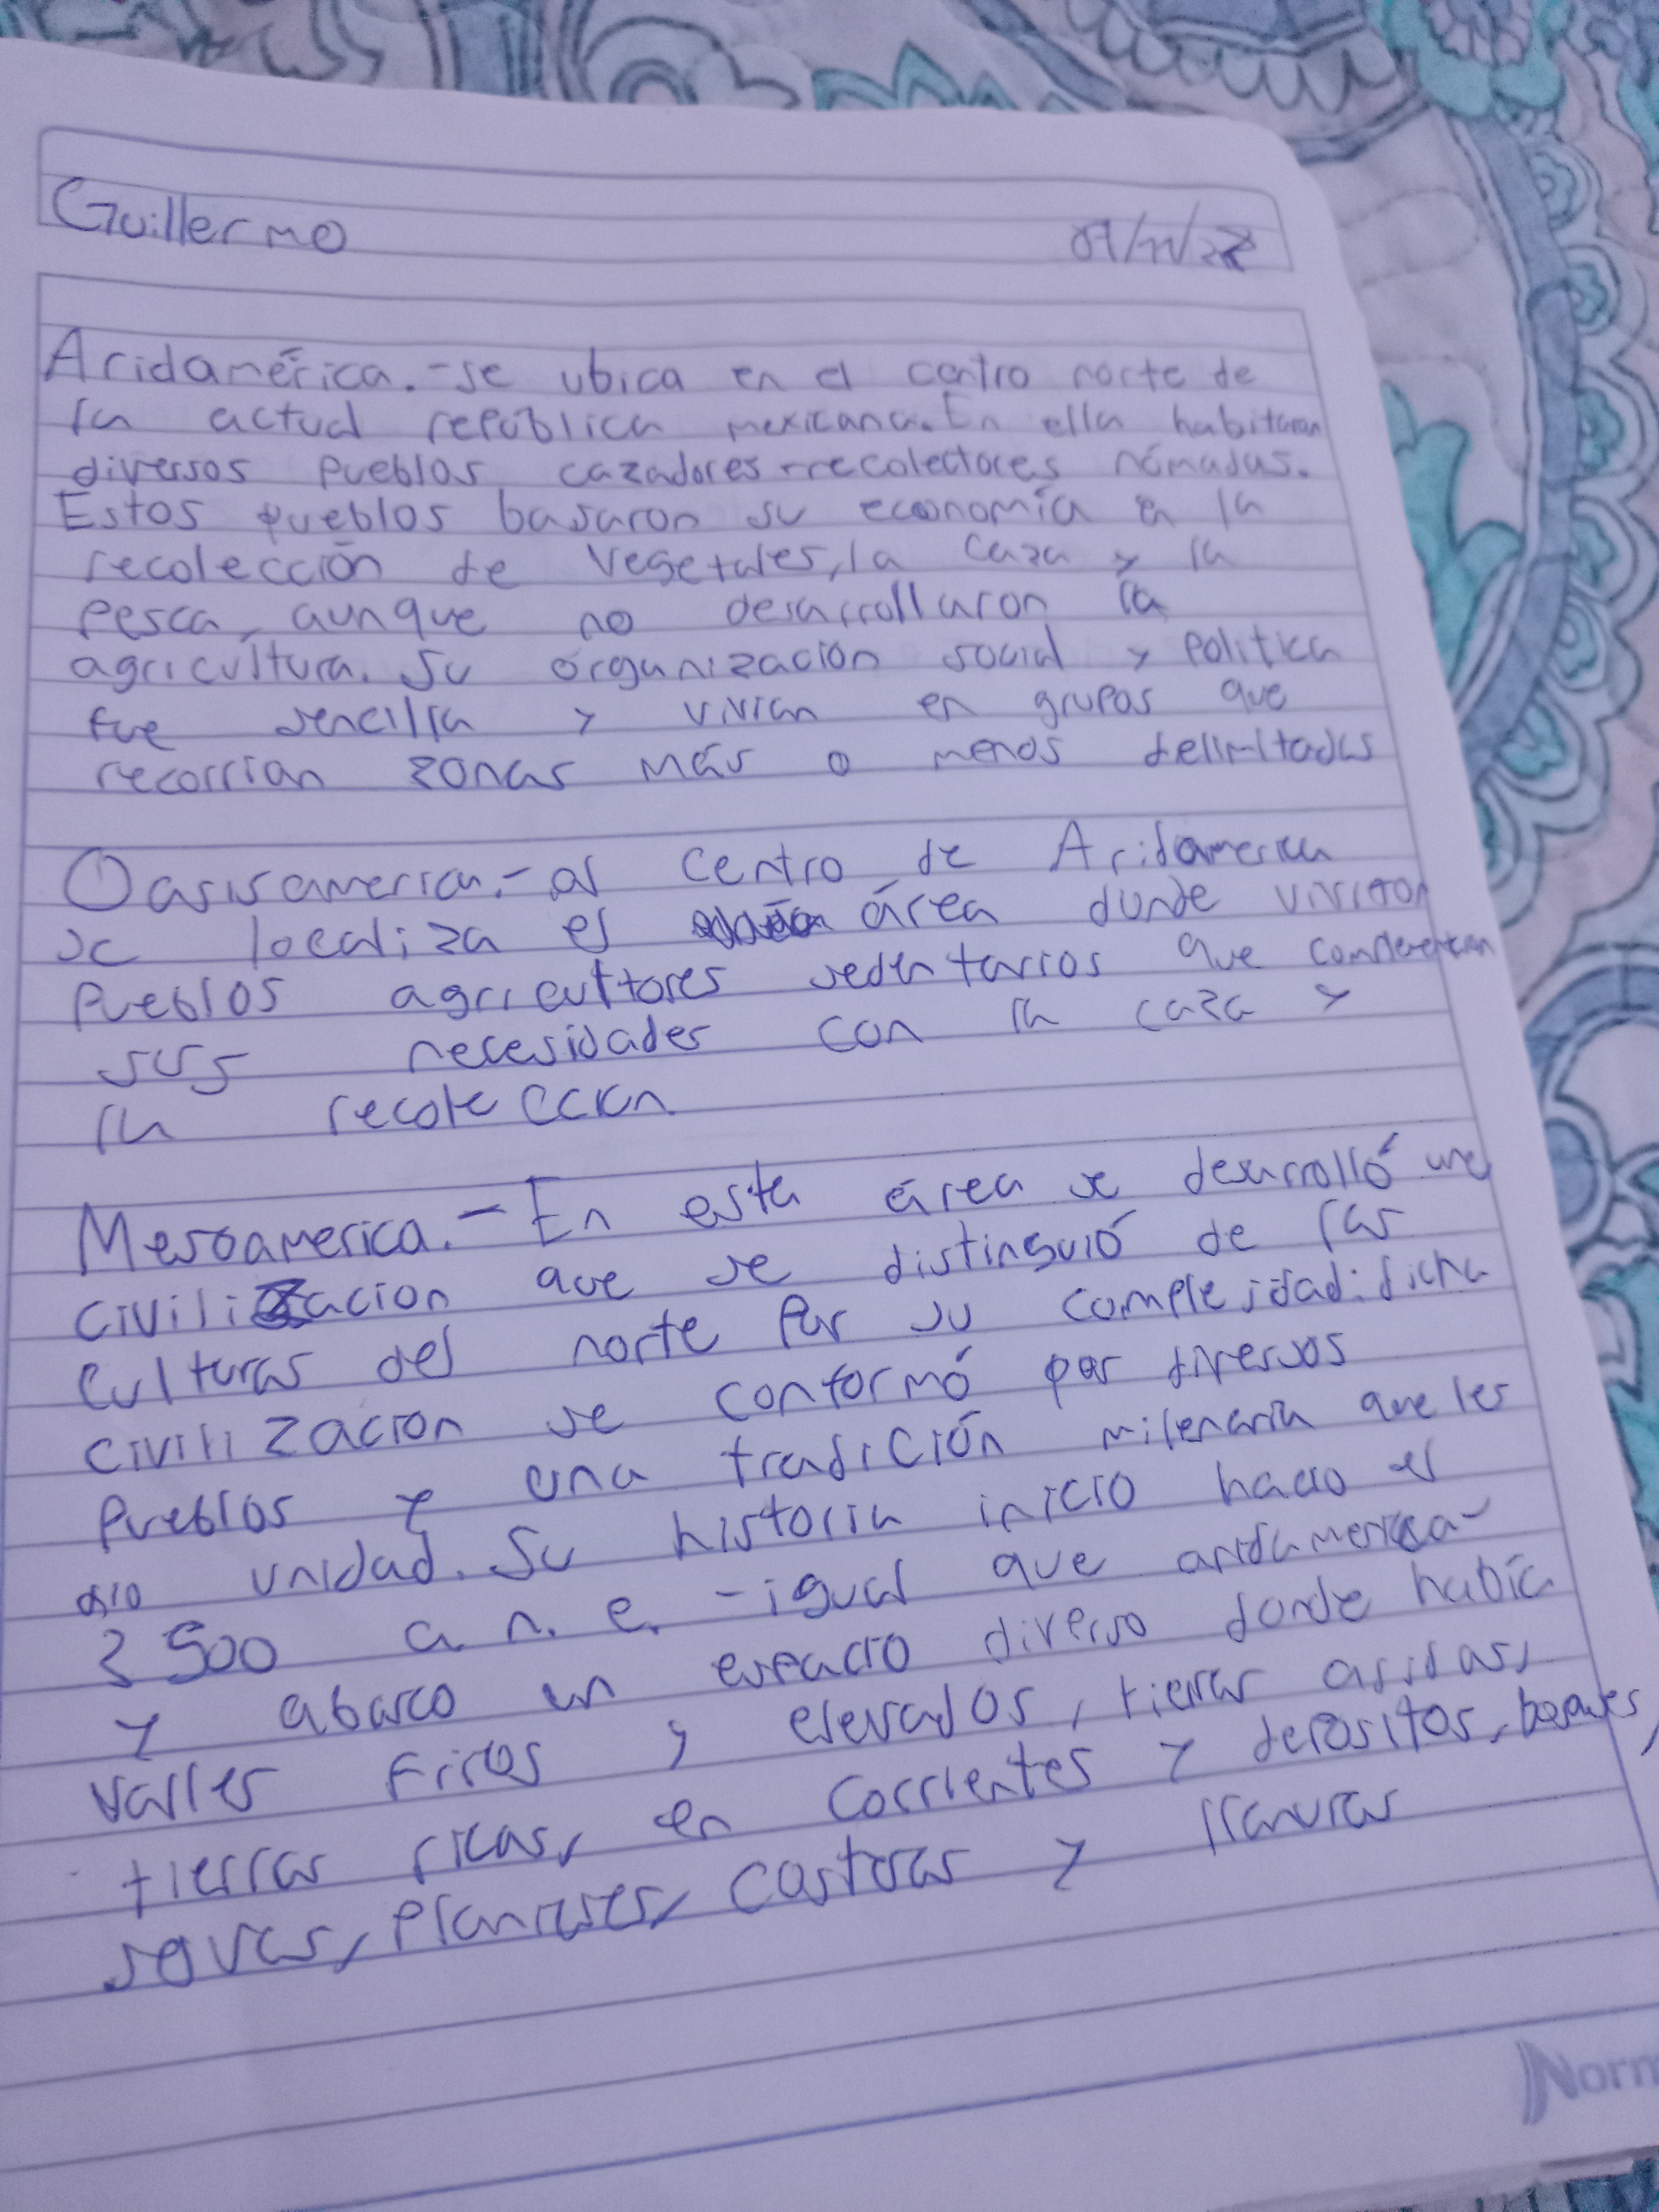 Guillermo
Aridamérica.-se ubica en el centro norte de
la actual república mexicana. En ella habitaron
diversos pueblos cazadores-recolectores nómadas.
Estos pueblos basaron su economía en la
recolección de vegetales, la caza y la
pesca, aunque no desarrollaron la
agricultura. Su organización social y politica
fue sencilla y vivian en grupos que
recorrian zonas más o menos delimitadas
Oasisamerica.- al centro de Aridamerica
se localiza el área donde vivieron
pueblos agricultores sedentarios que
sus necesidades con la caza y
la recoleccion
Mesoamerica.- En esta área se desarrolló una
civilizacion que se distinguió de las
culturas del norte por su complejidad: dicha
civilizacion se conformó por diversos
pueblos y una tradición milenaria que les
dio unidad. Su historia inicio hacia el
2500 a. n. e. -igual que aridamerica-
y abarco un espacio diverso donde había
valles frios y elevados, tierras aridas,
tierras ricas, en corrientes y depositos, bosques,
selvas, planicies, costeras y llanuras
Norm